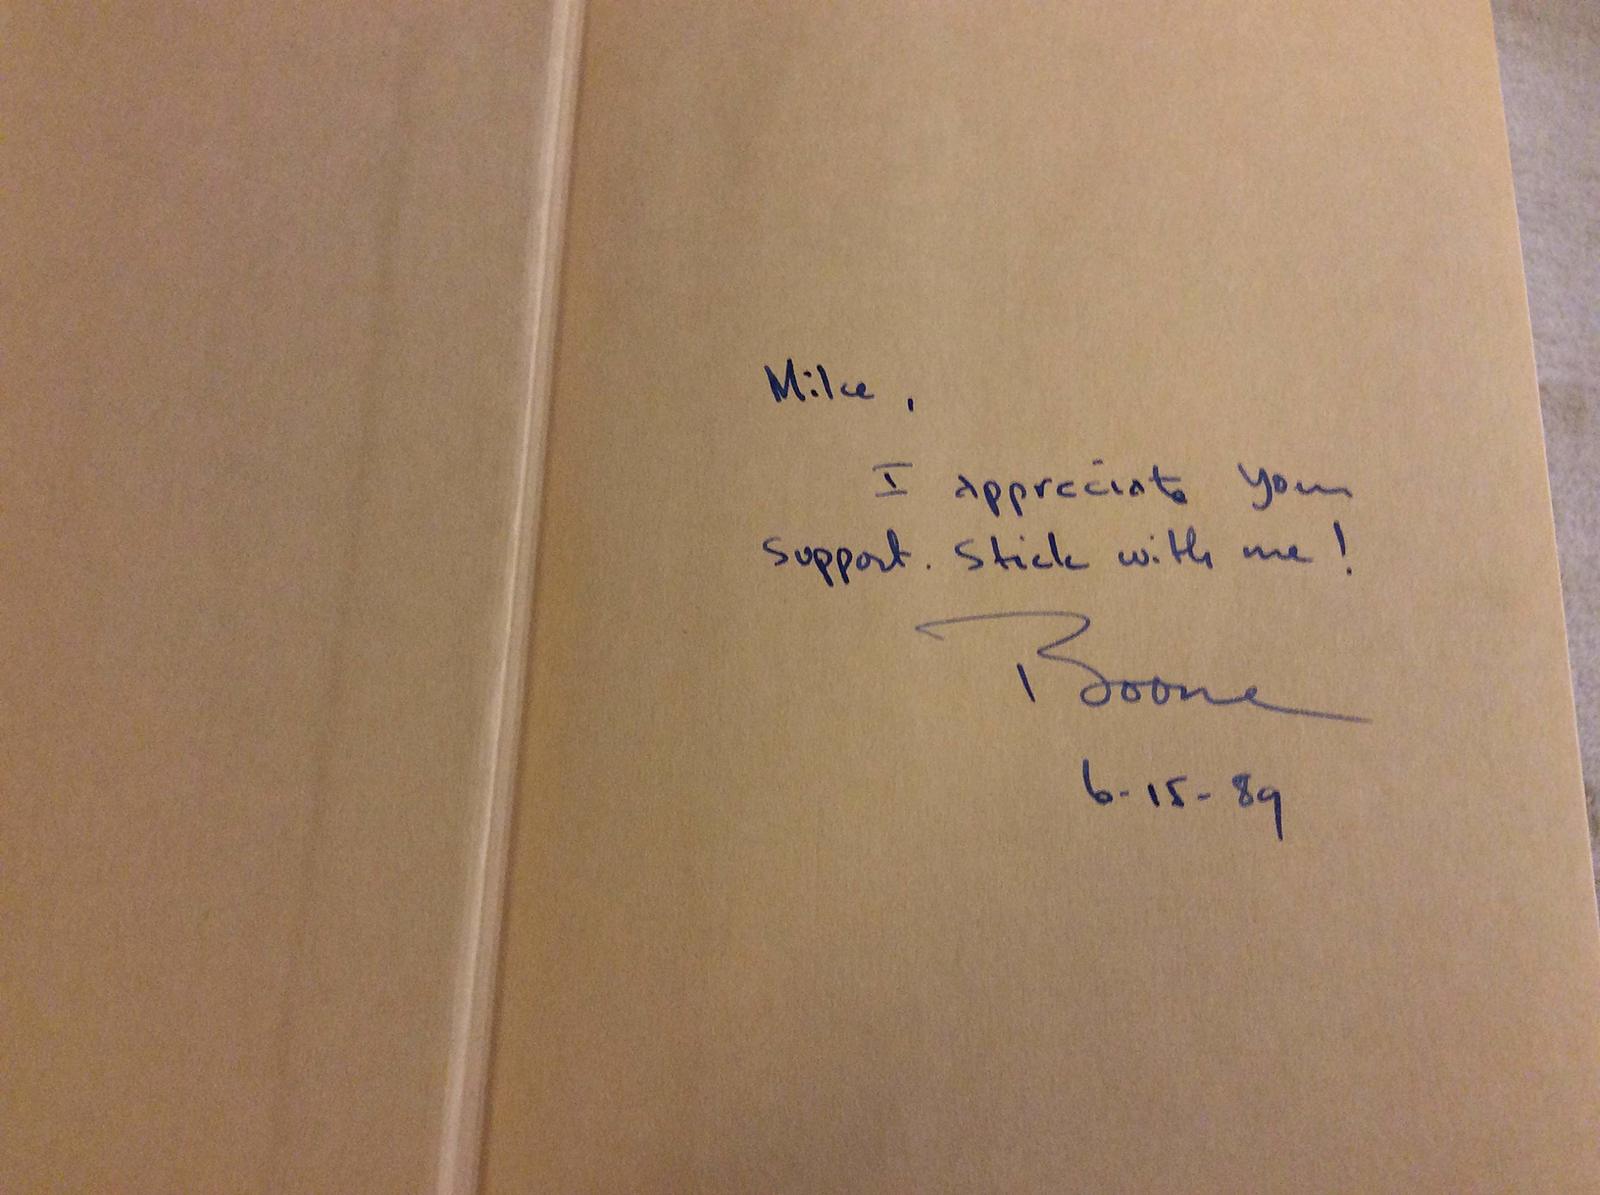 Mike,
I appreciate your
support. Stick with me!
Boone
6-15-89